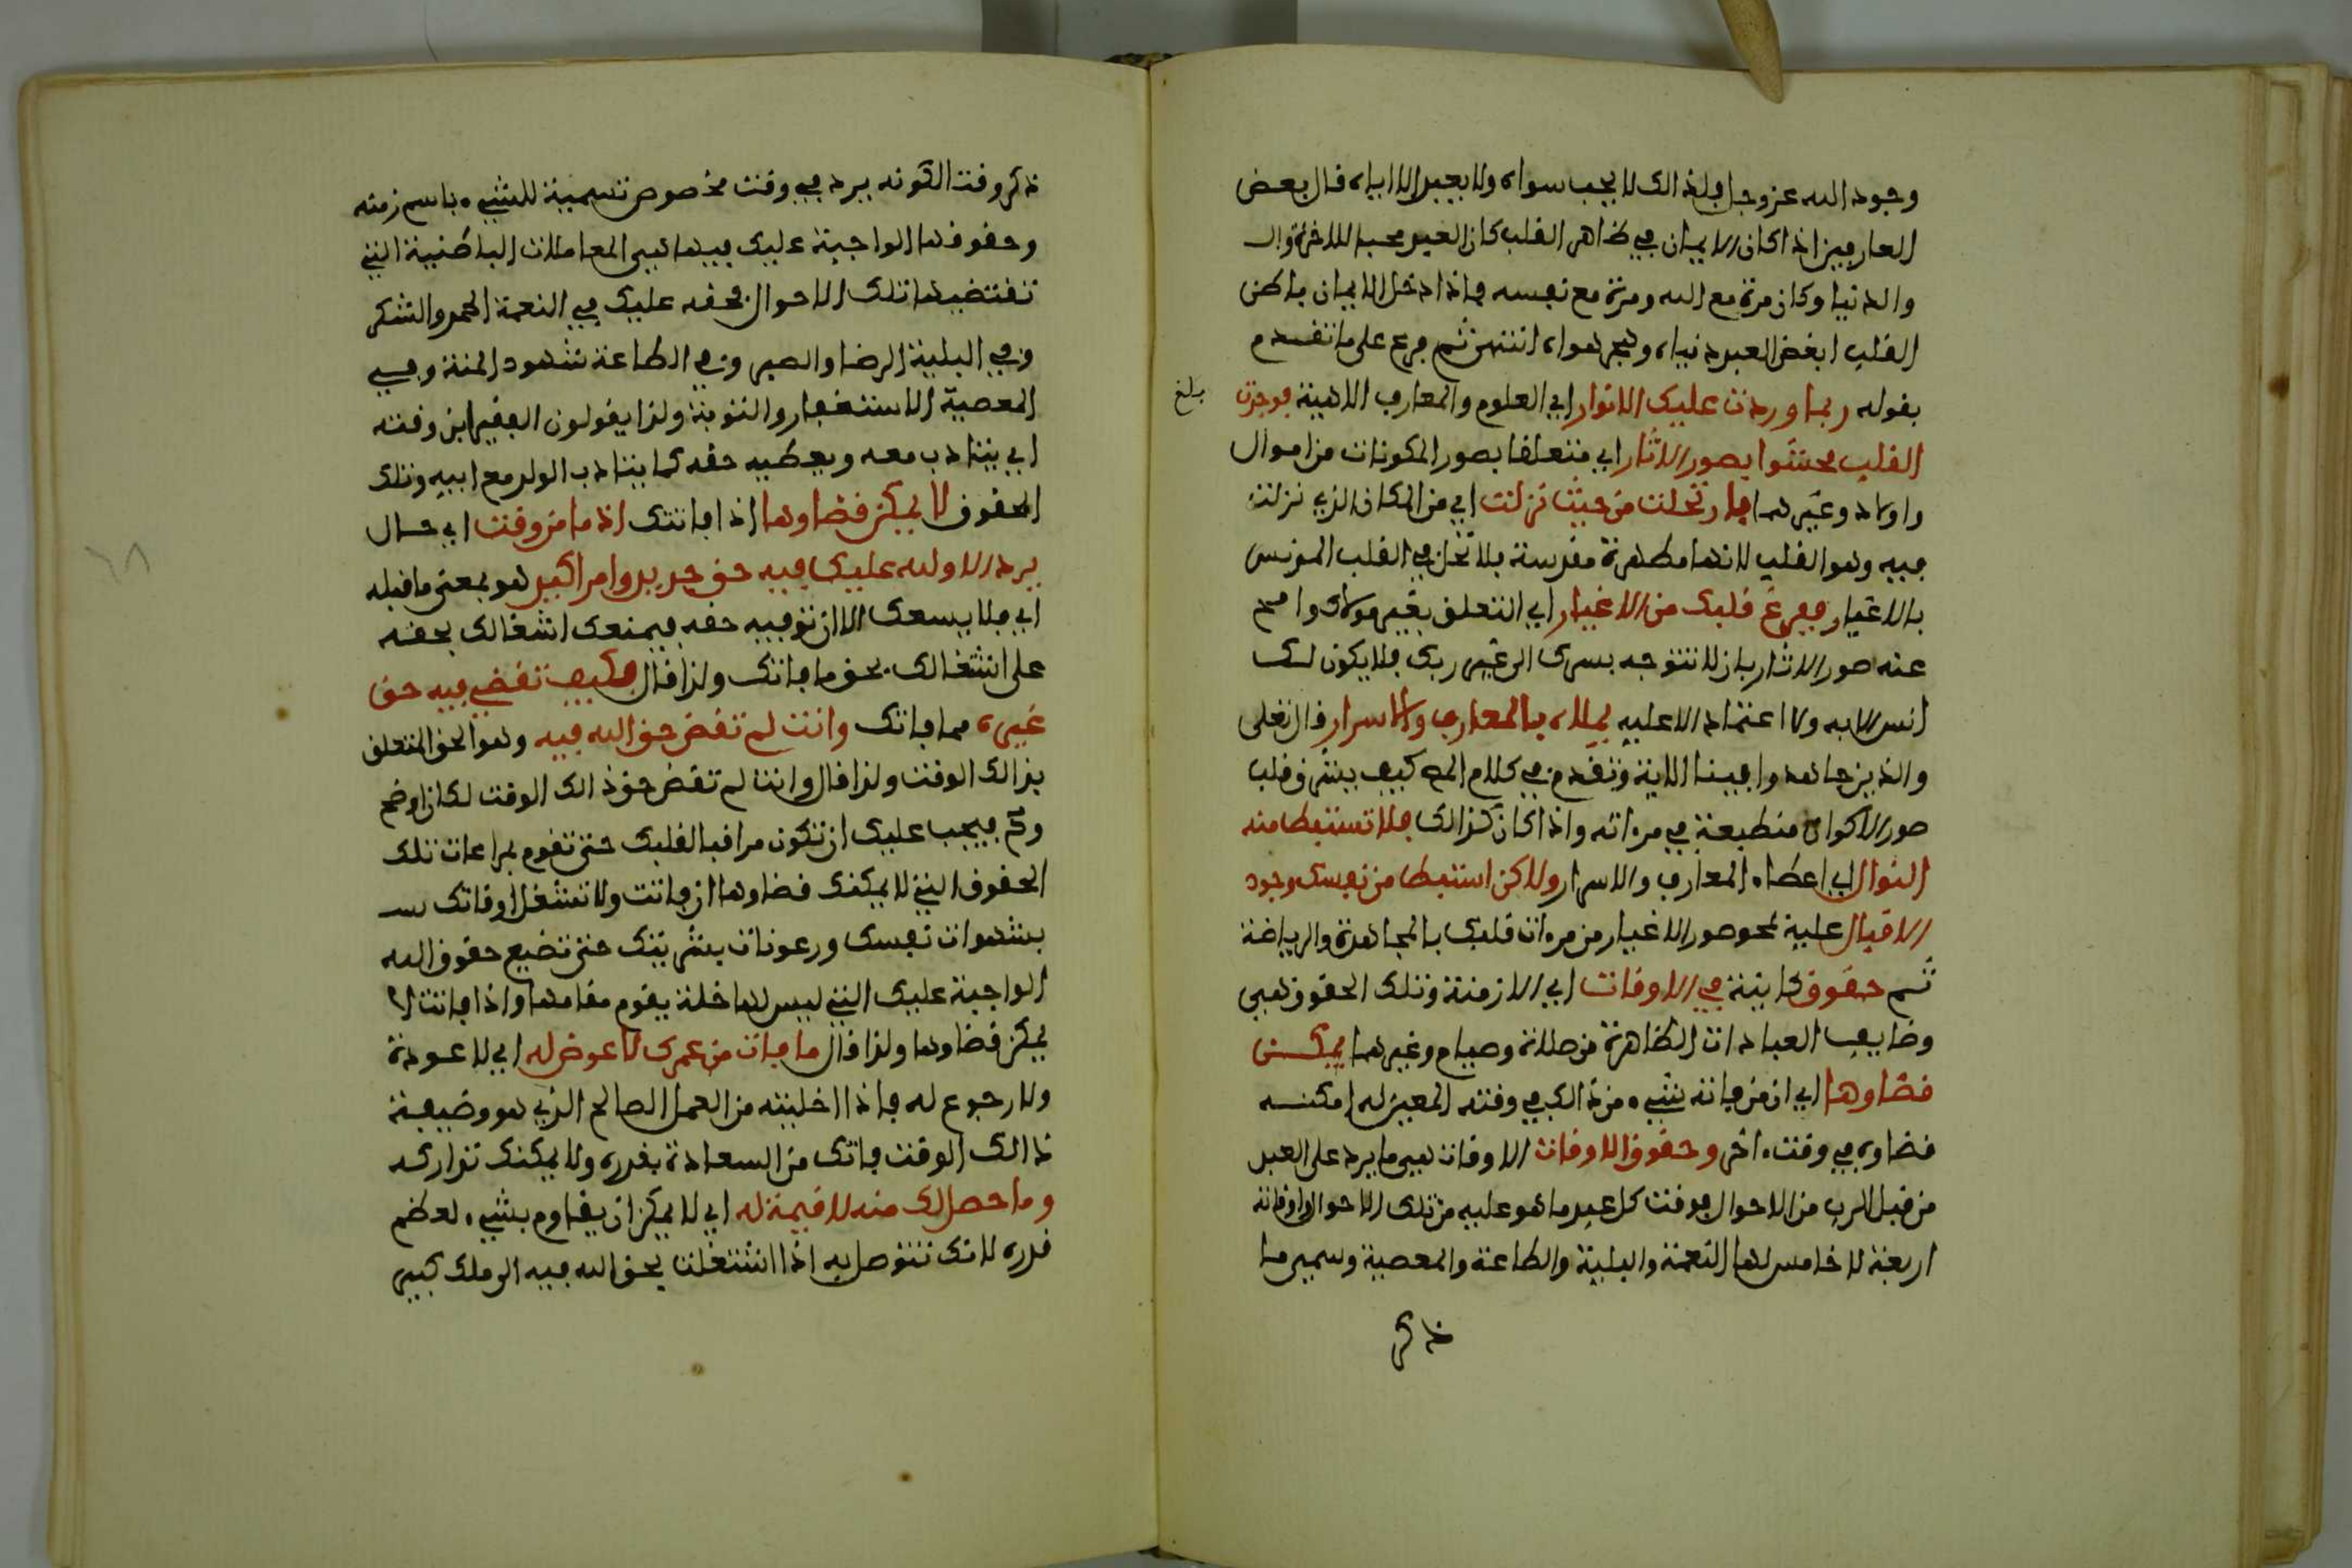 وجود الله عز وجل فلذالك لا يحب سواه ولا يعبد الا اياه قال بعض
العارفين اذا كان الايمان في ظاهر القلب كان العبد محبا للاخرة وال
والدنيا وكان مرة مع الله ومرة مع نفسه فاذا دخل الايمان باطن
القلب ابغض العبد دنياه وهجر هواه انتهى ثم فرع على ما تقدم
بقوله ربما وردت عليك الانوار اي العلوم والمعارف الاهية فوجدت
بلغ
القلب محشوا بصور الاثار اي متعلقا بصور المكونات من اموال
واولاد وغيرهما فارتحلت من حيث نزلت اي من المكان الذي نزلت
فيه وهو القلب لانها مطهرة مقدسة بلا تحل في القلب المدنس
بالاغيار ففرغ قلبك من الاغيار اي التعلق بغير مولاك وامح
عنه صور الاثار بان لا تتوجه بسرك الى غير ربك فلا يكون لك
انس الا به ولا اعتماد الا عليه يملاه بالمعارف والاسرار قال تعلى
والذين جاهدوا فينا الاية وتقدم في كلام المص كيف يشرق قلب
صور الاكوان منطبعة في مرءاته واذا كان كذالك فلا تستبطا منه
النوال اي اعطاء المعارف والاسرار ولاكن استبطا من نفسك وجود
الاقبال عليه لمحو صور الاغيار من مرءات قلبك بالمجاهدة والرياضة
ثم حقوق كاينة في الاوقات اي الازمنة وتلك الحقوق هي
وضايف العبادات الظاهرة من صلاة وصيام وغيرهما يمكن
قضاوها اي ان من فاته شيء من ذالك في وقته المعين له امكنه
قضاوه في وقت ءاخر وحقوق الاوقات الاوقات هي ما يرد على العبد
من قبل الرب من الاحوال فوقت كل عبد ما هو عليه من تلك الاحوال واوقاته
اربعة لا خامس لها النعمة والبلية والطاعة والمعصية وسمي ما
ذكر
ذكر وقت الكونه يرد في وقت مخصوص تسمية للشيء باسم زمنه
وحقوقها الواجبة عليك فيها هي المعاملات الباطنية التي
تقتضيها تلك الاحوال فحقه عليك في النعمة الحمد والشكر
وفي البلية الرضا والصبر وفي الطاعة شهود المنة وفي
المعصية الاستغفار والتوبة ولذا يقولون الفقير ابن وقته
اي يتادب معه ويعطيه حقه كما يتادب الولد مع ابيه وتلك
الحقوق لا يمكن قضاوها اذا فاتتك اذ ما من وقت اي حال
يرد الا ولله عليك فيه حق جديد وامر اكيد هو بمعنى ما قبله
اي فلا يسعك الا ان توفيه حقه فيمنعك اشغالك بحقه
على اشتغالك بحق ما فاتك ولذا قال فكيف تقضي فيه حق
غيره مما فاتك وانت لم تقض حق الله فيه وهو الحق المتعلق
بذالك الوقت ولذا قال وانت لم تقض حق ذالك الوقت لكان اوضح
وح فيجب عليك ان تكون مراقبا لقلبك حتى تقوم بمراعات تلك
الحقوق التي لا يمكنك قضاوها ان فاتت ولا تشغل اوقاتك بس
بشهوات نفسك ورعونات بشريتك حتى تضيع حقوق الله
الواجبة عليك التي ليس لها خلة يقوم مقامها واذا فاتت لا
يمكن قضاوها ولذا قال ما فات من عمرك لا عوض له اي لا عودة
ولا رجوع له فاذا اخليته من العمل الصالح الذي هو وضيفة
ذالك الوقت فاتك من السعادة بقدره ولا يمكنك تداركه
وما حصل لك منه لا قيمة له اي لا يمكن ان يقاوم بشيء لعظم
قدره لانك تتوصل به اذا اشتغلت بحق الله فيه الى ملك كبير
٦٨